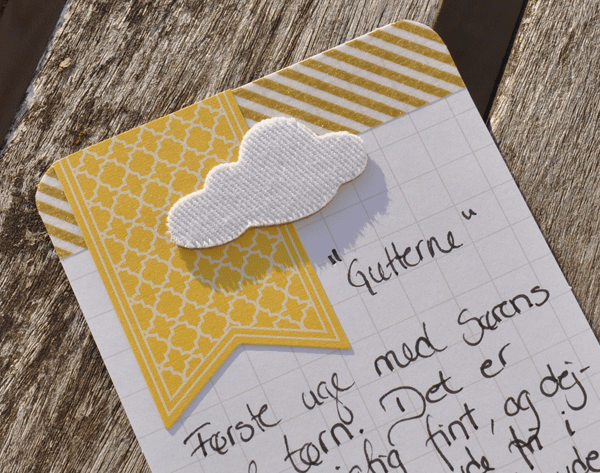 "Gutterne"
Første uge med Sørens
tørn. Det er
fint, og dej-
fri i